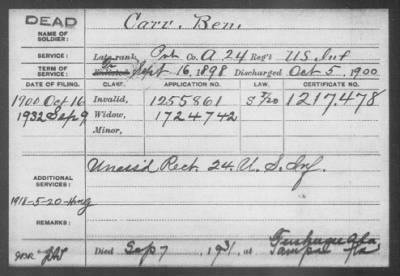 DEAD
NAME OF SOLDIER: Carr, Ben.
SERVICE: Late rank, Pvt Co. A 24 Reg't U.S. Inf
TERM OF SERVICE: Enlisted Sept 16, 1898 Discharged Oct 5, 1900
DATE OF FILING. CLASS. APPLICATION NO. LAW. CERTIFICATE NO.
1900 Oct 16 Invalid, 1255861 1217478
1932 Sep 9 Widow, 1724742
Minor,
ADDITIONAL SERVICES: Unass'd Rect. 24. U.S. Inf.
1918-5-20-
REMARKS:
Died Sep 7, 1931, at Tuskegee Ala
Tampa Fla